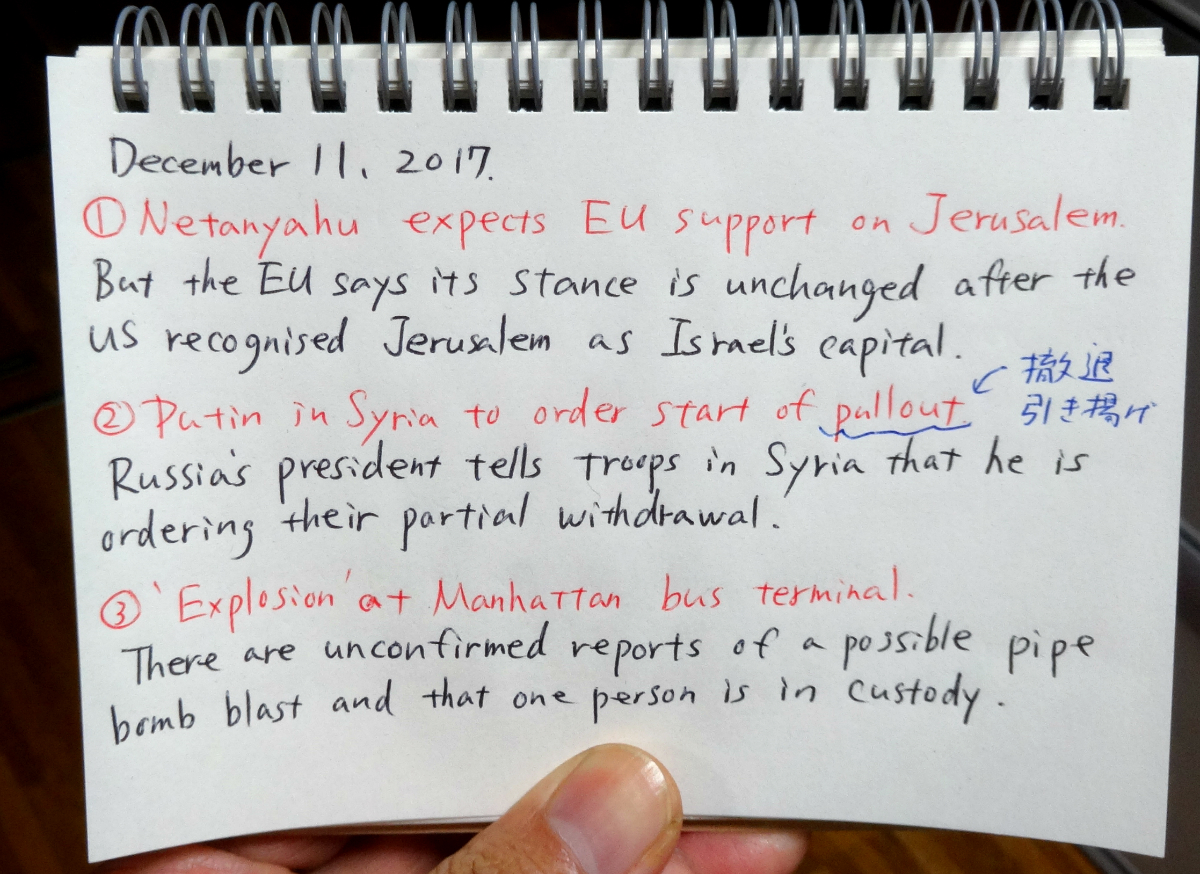 December 11, 2017.
① Netanyahu expects EU support on Jerusalem.
But the EU says its stance is unchanged after the
US recognised Jerusalem as Israel's capital.
② Putin in Syria to order start of pullout.
撤退
引き揚げ
Russia's president tells troops in Syria that he is
ordering their partial withdrawal.
③ 'Explosion' at Manhattan bus terminal.
There are unconfirmed reports of a possible pipe
bomb blast and that one person is in custody.